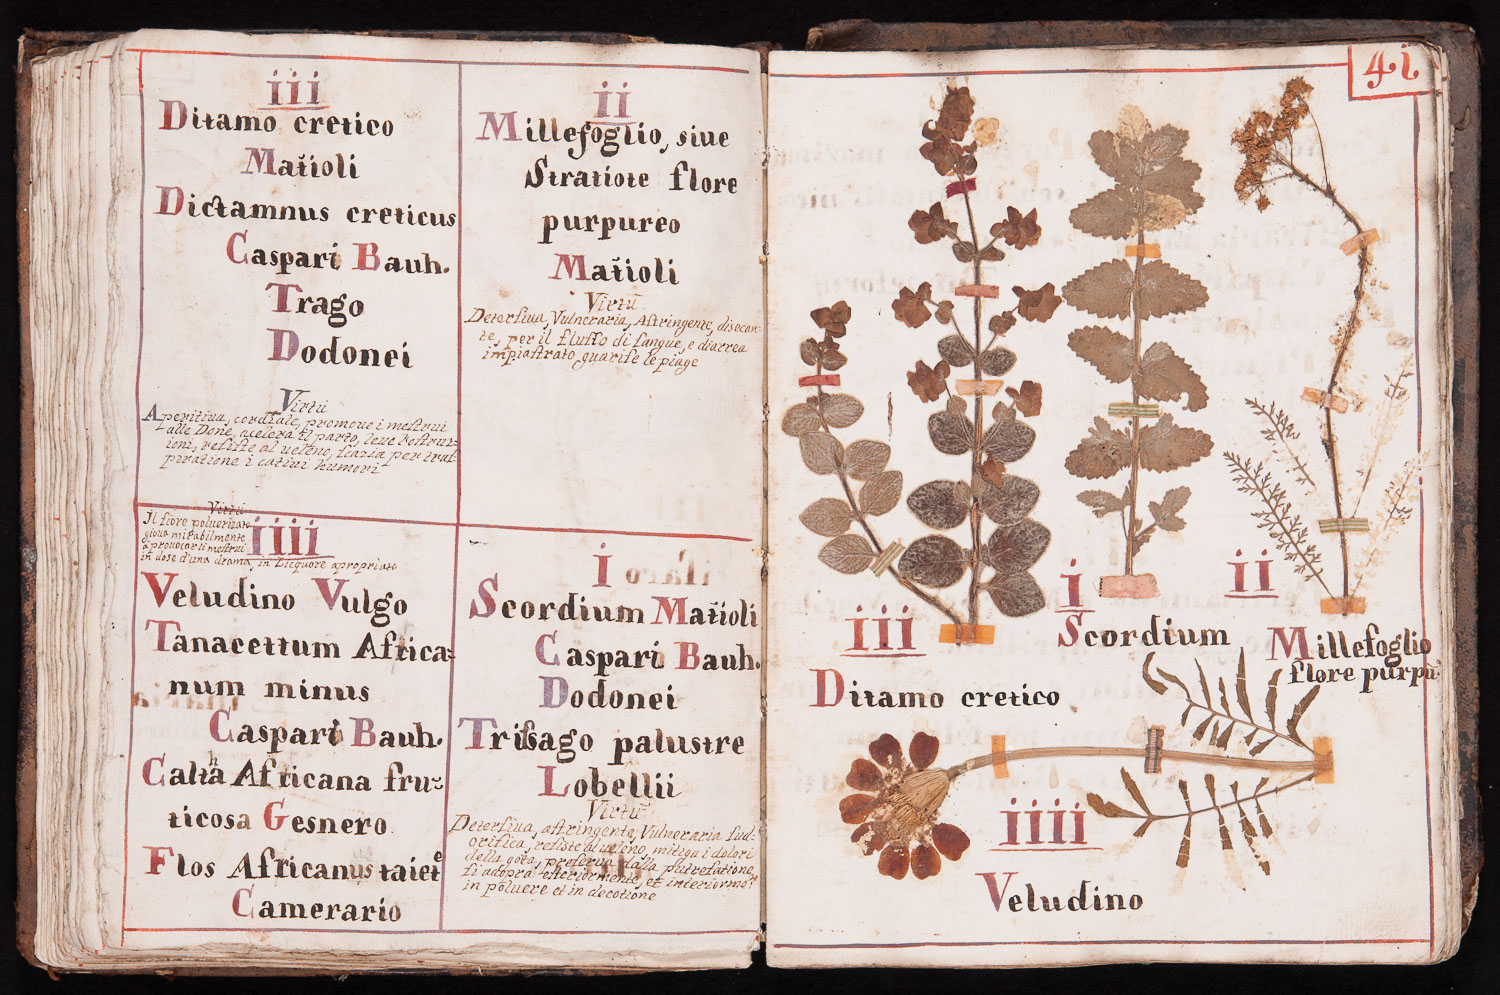 iii
Ditamo cretico
Matioli
Dictamnus creticus
Caspari Bauh.
Trago
Dodonei
Virtù
Aperitiua, cordiale, promoue i mestrui
alle Done, acelera il parto, leua l'ostruz-
ioni, resiste al ueleno, scazia per tras-
piratione i catiui humori
ii
Millefoglio, siue
Stratiote flore
purpureo
Matioli
Virtù
Detersiua, Vulneraria, Astringente, disecan-
te, per il flusso di sangue, e diarrea
impiastrato guarise le piage
Virtù
Il fiore poluerizato
gioua mirabilmente
a prouocar li mestrui
in dose d'una drama, in Licquore apropriato
iiii
Veludino Vulgo
Tanacettum Africa-
num minus
Caspari Bauh.
Caltha Africana fru-
ticosa Gesnero
Flos Africanus
Camerario
i
Scordium Matioli
Caspari Bauh.
Dodonei
Trissago palustre
Lobellii
Virtù
Detersiua, astringente, Vulneraria sud-
orifica, resiste al ueleno, mitiga i dolori
della gota, preserua dalla putrefatione,
si adopra esteriormente, et interiormte
in poluere et in decotione
41
iii
Ditamo cretico
i
Scordium
ii
Millefoglio
flore purpu
iiii
Veludino